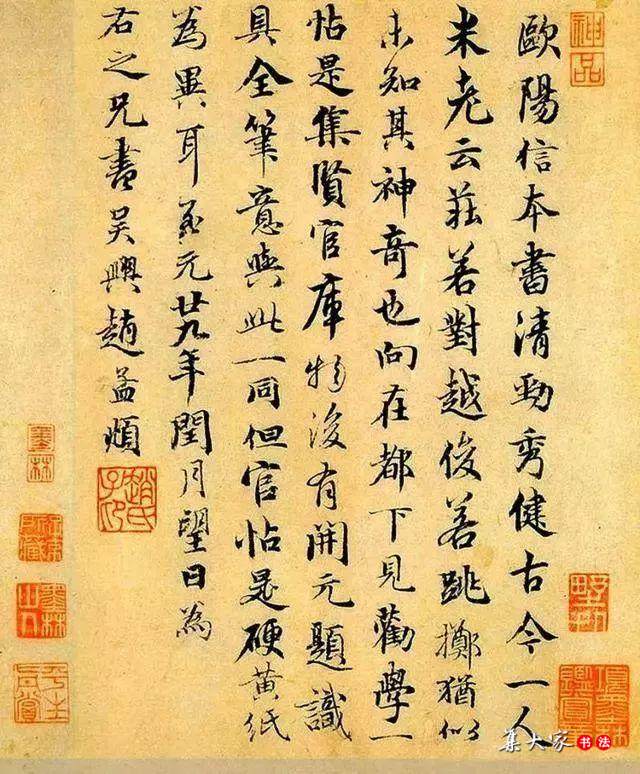 歐陽信本書清勁秀健古今一人
米老云莊若對越俊若跳擲猶似
未知其神奇也向在都下見勸學一
帖是集賢官庫物後有開元題識
具全筆意與此一同但官帖是硬黃紙
為異耳至元廿九年閏月望日為
右之兄書吳興趙孟頫
趙氏子昂
神品
墨林
項墨林鑑賞章
平生真賞
集大家書法